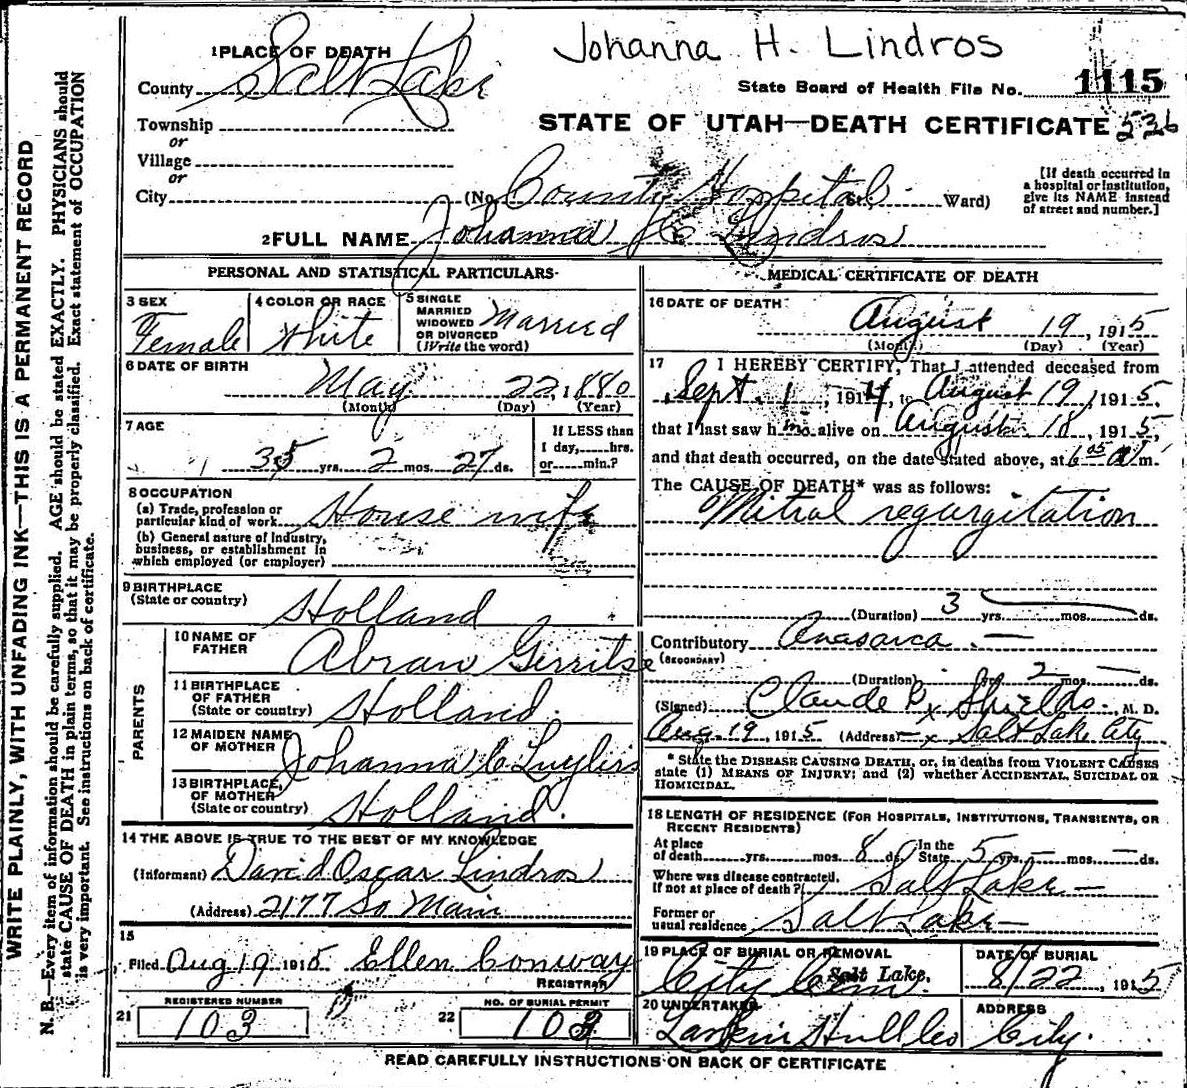 Johanna H. Lindros
1 PLACE OF DEATH
County Salt Lake
State Board of Health File No. 1115
Township
or
STATE OF UTAH—DEATH CERTIFICATE 536
Village
or
City (No. County Hospital St. Ward)
[If death occurred in a hospital or institution, give its NAME instead of street and number.]
2 FULL NAME Johanna H Lindros
PERSONAL AND STATISTICAL PARTICULARS
3 SEX Female
4 COLOR OR RACE White
5 SINGLE MARRIED WIDOWED OR DIVORCED (Write the word) Married
6 DATE OF BIRTH May 22, 1880
(Month) (Day) (Year)
7 AGE 35 yrs. 2 mos. 27 ds.
If LESS than 1 day, hrs. or min.?
8 OCCUPATION
(a) Trade, profession or particular kind of work House wife
(b) General nature of industry, business, or establishment in which employed (or employer)
9 BIRTHPLACE (State or country) Holland
PARENTS
10 NAME OF FATHER Abram Gerritse
11 BIRTHPLACE OF FATHER (State or country) Holland.
12 MAIDEN NAME OF MOTHER Johanna C
13 BIRTHPLACE OF MOTHER (State or country) Holland.
14 THE ABOVE IS TRUE TO THE BEST OF MY KNOWLEDGE
(Informant) David Oscar Lindros
(Address) 2177 So Main
15
Filed Aug 19 1915 Ellen Conway
REGISTRAR
21 REGISTERED NUMBER 103
22 NO. OF BURIAL PERMIT 103
MEDICAL CERTIFICATE OF DEATH
16 DATE OF DEATH August 19, 1915
(Month) (Day) (Year)
17 I HEREBY CERTIFY, That I attended deceased from
Sept. 1, 1914, to August 19, 1915,
that I last saw h alive on August 18, 1915,
and that death occurred, on the date stated above, at 6 05 a m.
The CAUSE OF DEATH* was as follows:
Mitral regurgitation
(Duration) 3 yrs. mos. ds.
Contributory Anasarca.
(SECONDARY)
(Duration) yrs. 2 mos. ds.
(Signed) Claude Shields, M. D.
Aug. 19, 1915 (Address) Salt Lake City
* State the DISEASE CAUSING DEATH, or, in deaths from VIOLENT CAUSES
state (1) MEANS OF INJURY; and (2) whether ACCIDENTAL, SUICIDAL OR
HOMICIDAL.
18 LENGTH OF RESIDENCE (FOR HOSPITALS, INSTITUTIONS, TRANSIENTS, OR
RECENT RESIDENTS)
At place of death yrs. mos. 8 ds. In the State 5 yrs. mos. ds.
Where was disease contracted, if not at place of death? Salt Lake
Former or usual residence Salt Lake
19 PLACE OF BURIAL OR REMOVAL
City Cem. Salt Lake.
DATE OF BURIAL
8/22, 1915
20 UNDERTAKER
Larkin
ADDRESS
City.
READ CAREFULLY INSTRUCTIONS ON BACK OF CERTIFICATE
WRITE PLAINLY, WITH UNFADING INK—THIS IS A PERMANENT RECORD
N. B.—Every item of information should be carefully supplied. AGE should be stated EXACTLY. PHYSICIANS should
state CAUSE OF DEATH in plain terms, so that it may be properly classified. Exact statement of OCCUPATION
is very important. See instructions on back of certificate.